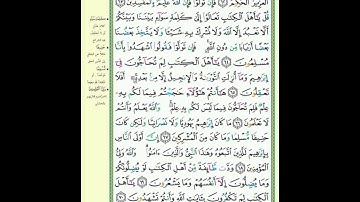 ٱلْعَزِيزُ ٱلْحَكِيمُ ٦٢ فَإِن تَوَلَّوْا۟ فَإِنَّ ٱللَّهَ عَلِيمٌۢ بِٱلْمُفْسِدِينَ ٦٣
قُلْ يَـٰٓأَهْلَ ٱلْكِتَـٰبِ تَعَالَوْا۟ إِلَىٰ كَلِمَةٍ سَوَآءٍۭ بَيْنَنَا وَبَيْنَكُمْ
أَلَّا نَعْبُدَ إِلَّا ٱللَّهَ وَلَا نُشْرِكَ بِهِۦ شَيْـًٔا وَلَا يَتَّخِذَ بَعْضُنَا
بَعْضًا أَرْبَابًا مِّن دُونِ ٱللَّهِ ۚ فَإِن تَوَلَّوْا۟ فَقُولُوا۟ ٱشْهَدُوا۟ بِأَنَّا
مُسْلِمُونَ ٦٤ يَـٰٓأَهْلَ ٱلْكِتَـٰبِ لِمَ تُحَآجُّونَ فِىٓ
إِبْرَٰهِيمَ وَمَآ أُنزِلَتِ ٱلتَّوْرَىٰةُ وَٱلْإِنجِيلُ إِلَّا مِنۢ بَعْدِهِۦٓ ۚ
أَفَلَا تَعْقِلُونَ ٦٥ هَـٰٓأَنتُمْ هَـٰٓؤُلَآءِ حَـٰجَجْتُمْ فِيمَا لَكُم بِهِۦ
عِلْمٌ فَلِمَ تُحَآجُّونَ فِيمَا لَيْسَ لَكُم بِهِۦ عِلْمٌ ۚ وَٱللَّهُ يَعْلَمُ وَأَنتُمْ
لَا تَعْلَمُونَ ٦٦ مَا كَانَ إِبْرَٰهِيمُ يَهُودِيًّا وَلَا نَصْرَانِيًّا وَلَـٰكِن كَانَ
حَنِيفًا مُّسْلِمًا وَمَا كَانَ مِنَ ٱلْمُشْرِكِينَ ٦٧ إِنَّ أَوْلَى ٱلنَّاسِ
بِإِبْرَٰهِيمَ لَلَّذِينَ ٱتَّبَعُوهُ وَهَـٰذَا ٱلنَّبِىُّ وَٱلَّذِينَ ءَامَنُوا۟ ۗ وَٱللَّهُ وَلِىُّ
ٱلْمُؤْمِنِينَ ٦٨ وَدَّت طَّآئِفَةٌ مِّنْ أَهْلِ ٱلْكِتَـٰبِ لَوْ يُضِلُّونَكُمْ
وَمَا يُضِلُّونَ إِلَّآ أَنفُسَهُمْ وَمَا يَشْعُرُونَ ٦٩ يَـٰٓأَهْلَ
ٱلْكِتَـٰبِ لِمَ تَكْفُرُونَ بِـَٔايَـٰتِ ٱللَّهِ وَأَنتُمْ تَشْهَدُونَ ٧٠